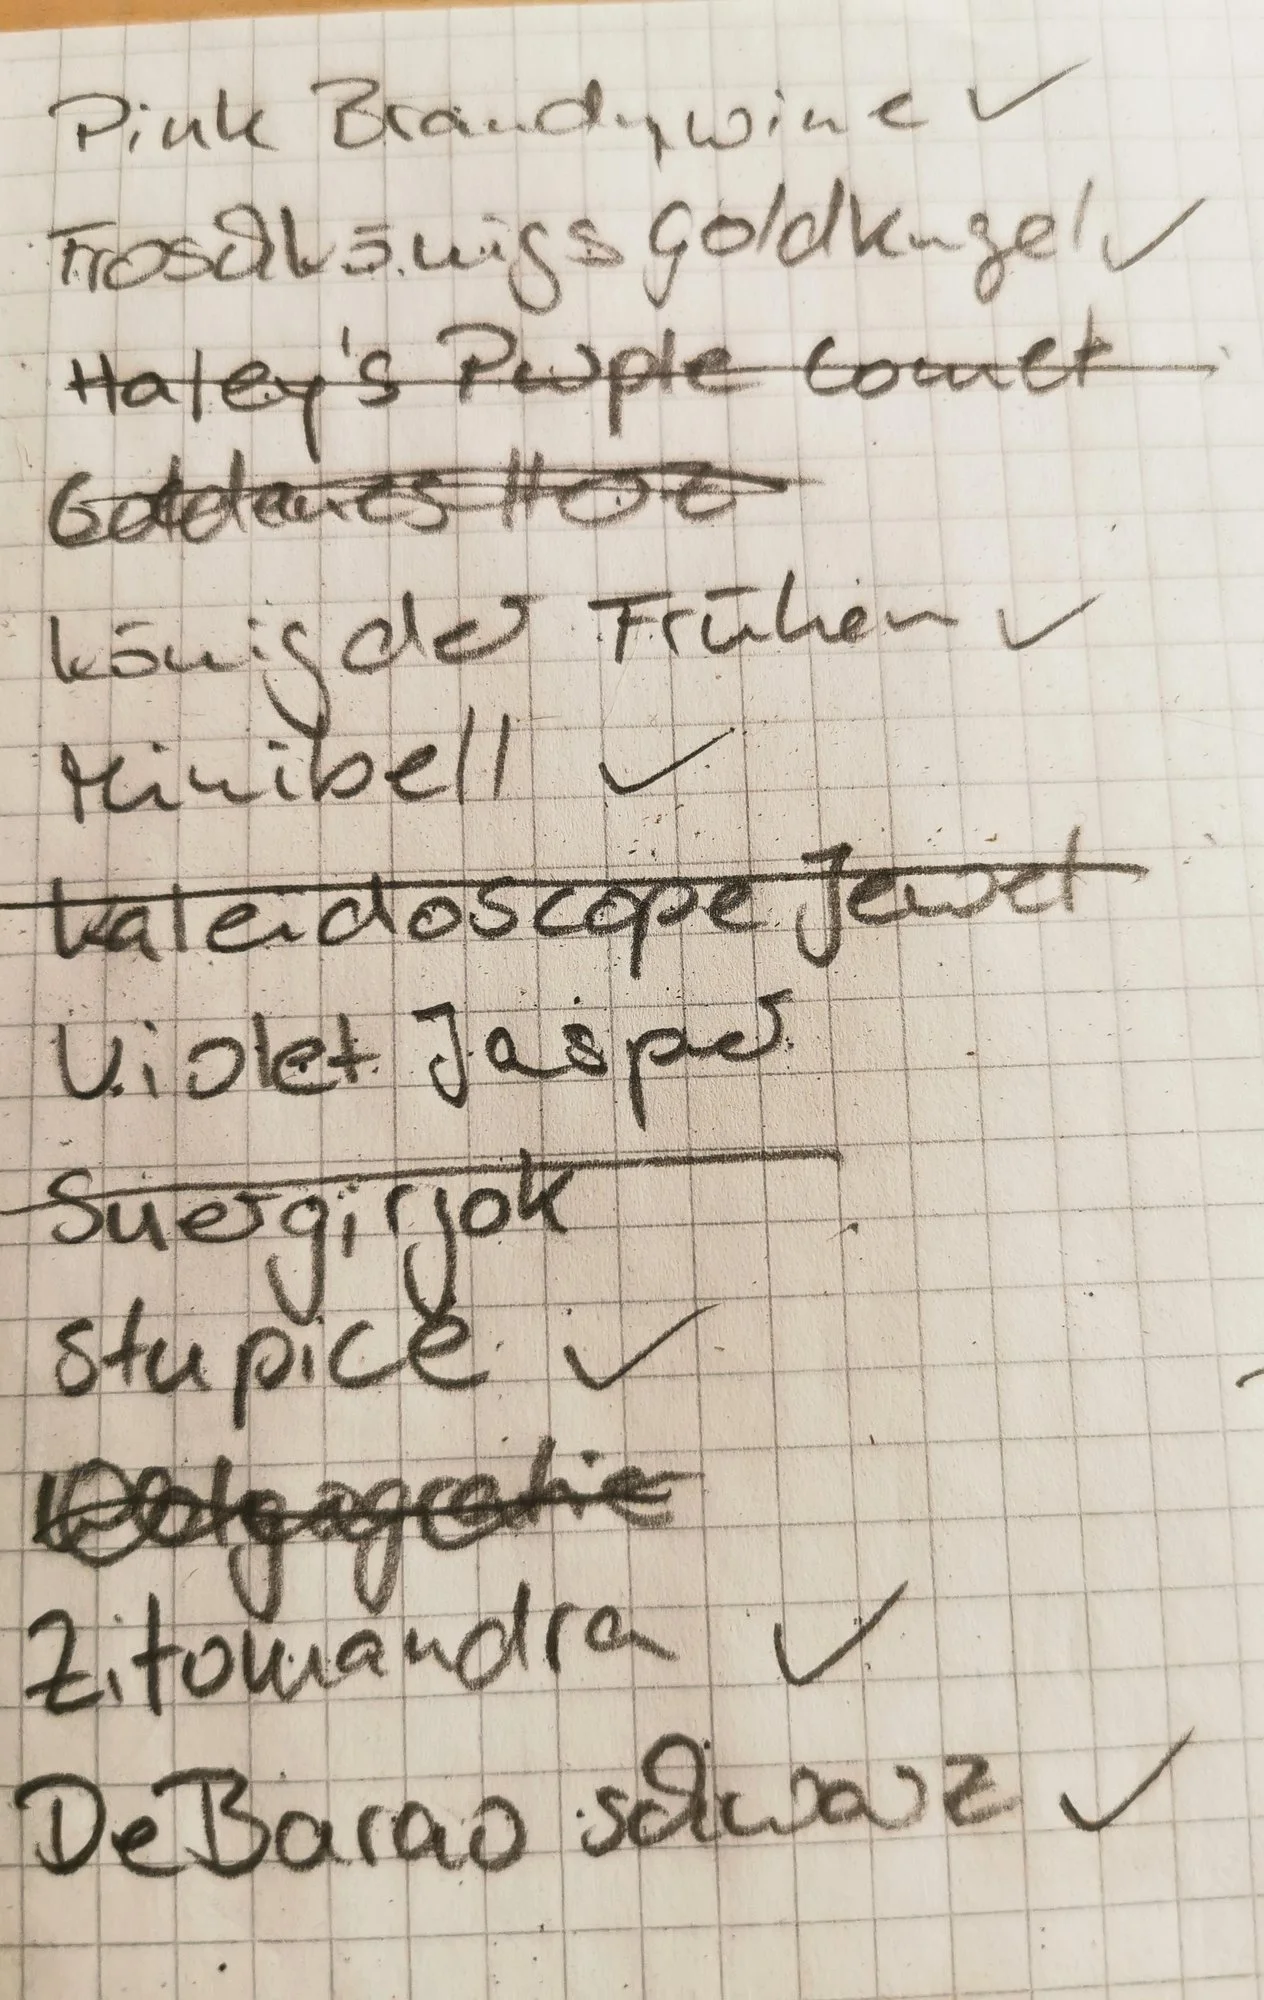 Pink Brandywine ✓
Froschkönigs Goldkugel ✓
Haley's Purple Comet
Goldenes Herz
König der Frühen ✓
Minibell ✓
Kaleidoscope Jewel
Violet Jasper
Suergirjok
Stupice ✓
Zitomandra ✓
De Barao schwarz ✓